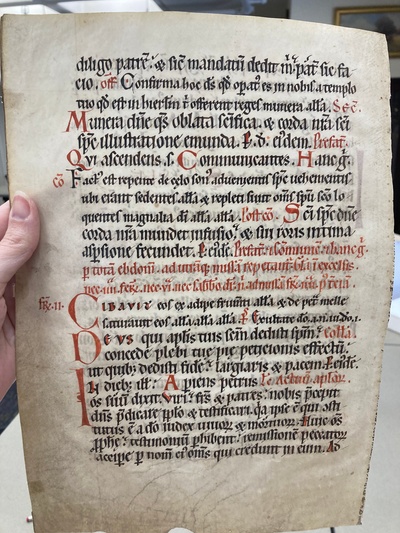 diligo patrē. & sic̄ mandatū dedit m̄ pat̄ sic fa-
cio. off̄ Confirma hoc ds̄ qd̄ opat' es in nobis a templo
tuo qd̄ est in hierlm̄ t̄ offerent reges munera alla. Sec̄.
Munera dn̄e qs̄ oblata sc̄ifica. & corda nr̄a sc̄i
sp̄c illustratione emunda. P. d. ei'dem. Prefat̄.
Qui ascendens. s. Communicantes. Hanc g.
cō Fact' est repente de celo son' aduenientis sp̄c uehementis
ubi erant sedentes. alla & repleti sunt om̄s spū sc̄o lo
quentes magnalia dī alla alla. Postcō. Sc̄i sp̄c dn̄e
corda nr̄a mundet infusio. & sui roris intima
aspsione fecundet. P. eiusdē. Prefat̄ & cōmunic̄ & hanc g.
p totā ebdom̄.
fr̄. ii. Cibavit eos ex adipe frumti alla & de pet̄ melle
saturauit eos alla alla. P̄s Exultate dō.
Deus qui aplis tuis sc̄m dedisti spm̄. colla
concede plebi tue pie peticionis effectū.
ut quib; dedisti fidē. largiaris & pacem. P. eiusdē
In dieb; ill. Aperiens petrus Lc̄ Actuū aplor̄.
os suū dixit. Uiri fr̄s & patres. nobis p̄cepit
dn̄s p̄dicare pplo & testificari. qa ipse ē qui c̄sti
tutus ē a dō iudex uiuor̄ & mortuor̄. Huic om̄s
pphe testimoniū phibent. remissionē pccator̄
accipe p nom̄ ei' om̄s qui credunt in eum. Ad